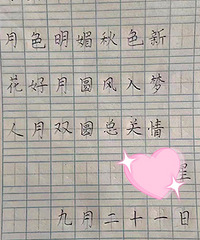 月色明媚秋色新
花好月圆风入梦
人月双圆总关情
星
九月二十一日